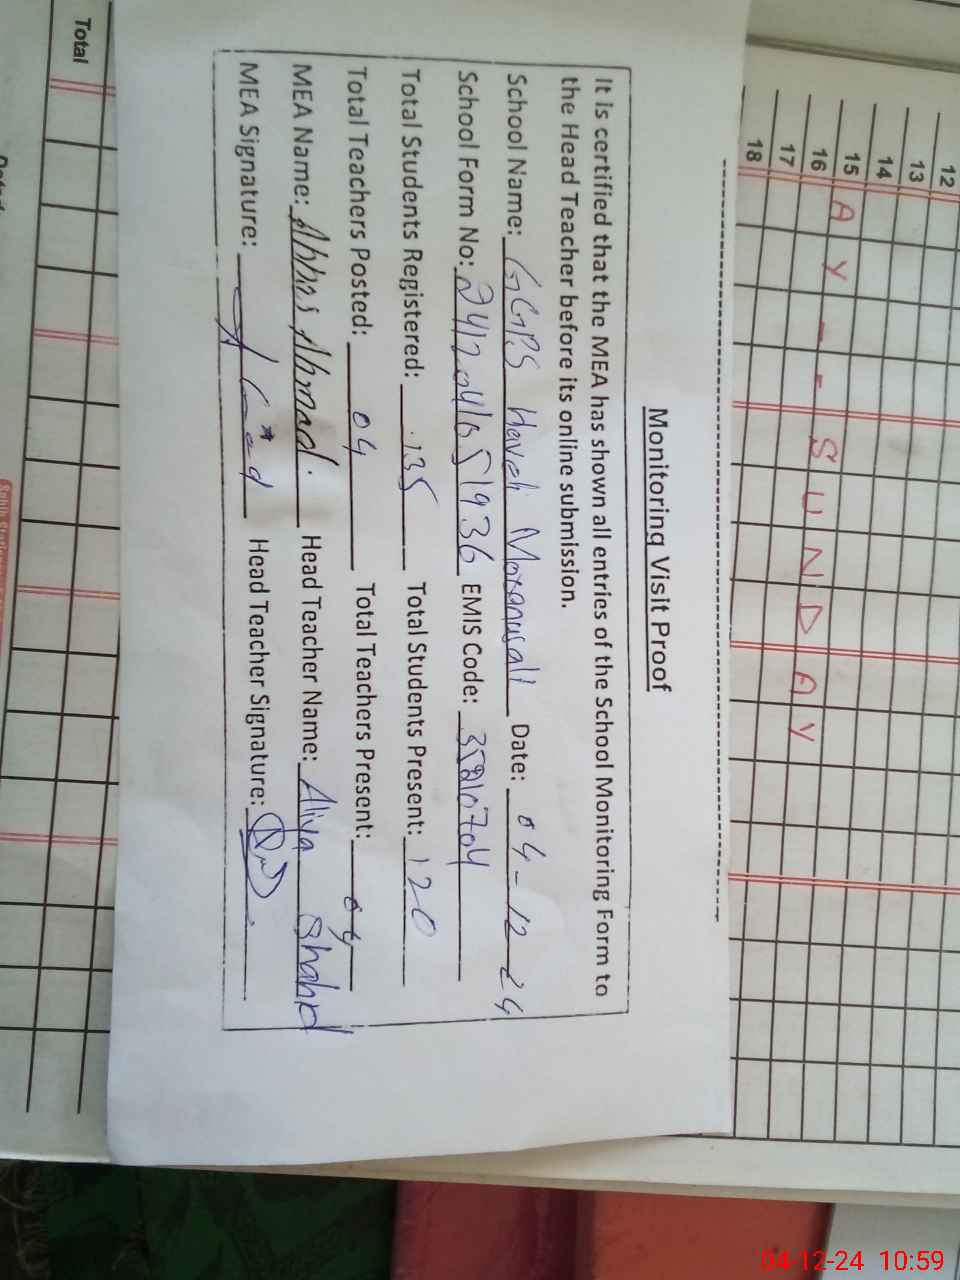 12
13
14
15 A Y - - S U N D A Y
16
17
18
Monitoring Visit Proof
It is certified that the MEA has shown all entries of the School Monitoring Form to
the Head Teacher before its online submission.
School Name: GGPS Haveli Date: 04-12-24
School Form No: 2412041651936 EMIS Code:
Total Students Registered: 135 Total Students Present: 120
Total Teachers Posted: 04 Total Teachers Present: 04
MEA Name: Abbas Ahmad Head Teacher Name: Aliya Shahd
MEA Signature: Head Teacher Signature:
Total
04-12-24 10:59